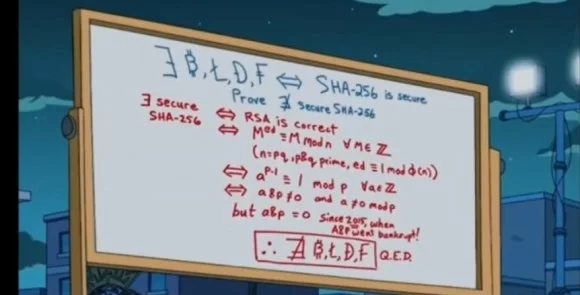 ∃ ₿, Ł, Ð, F ⇔ SHA-256 is secure
Prove ∄ secure SHA-256
∃ secure SHA-256 ⇔ RSA is correct
⇔ M^ed ≡ M mod n ∀ M ∈ ℤ
(n=pq, p&q prime, ed ≡ 1 mod φ(n))
⇔ a^p-1 ≡ 1 mod p ∀a∈ℤ
⇔ a&p ≠ 0 and a ≠ 0 mod p
but a&p = 0 since 2015, when
A&P went bankrupt!
∴ ∄ ₿, Ł, Ð, F Q.E.D.